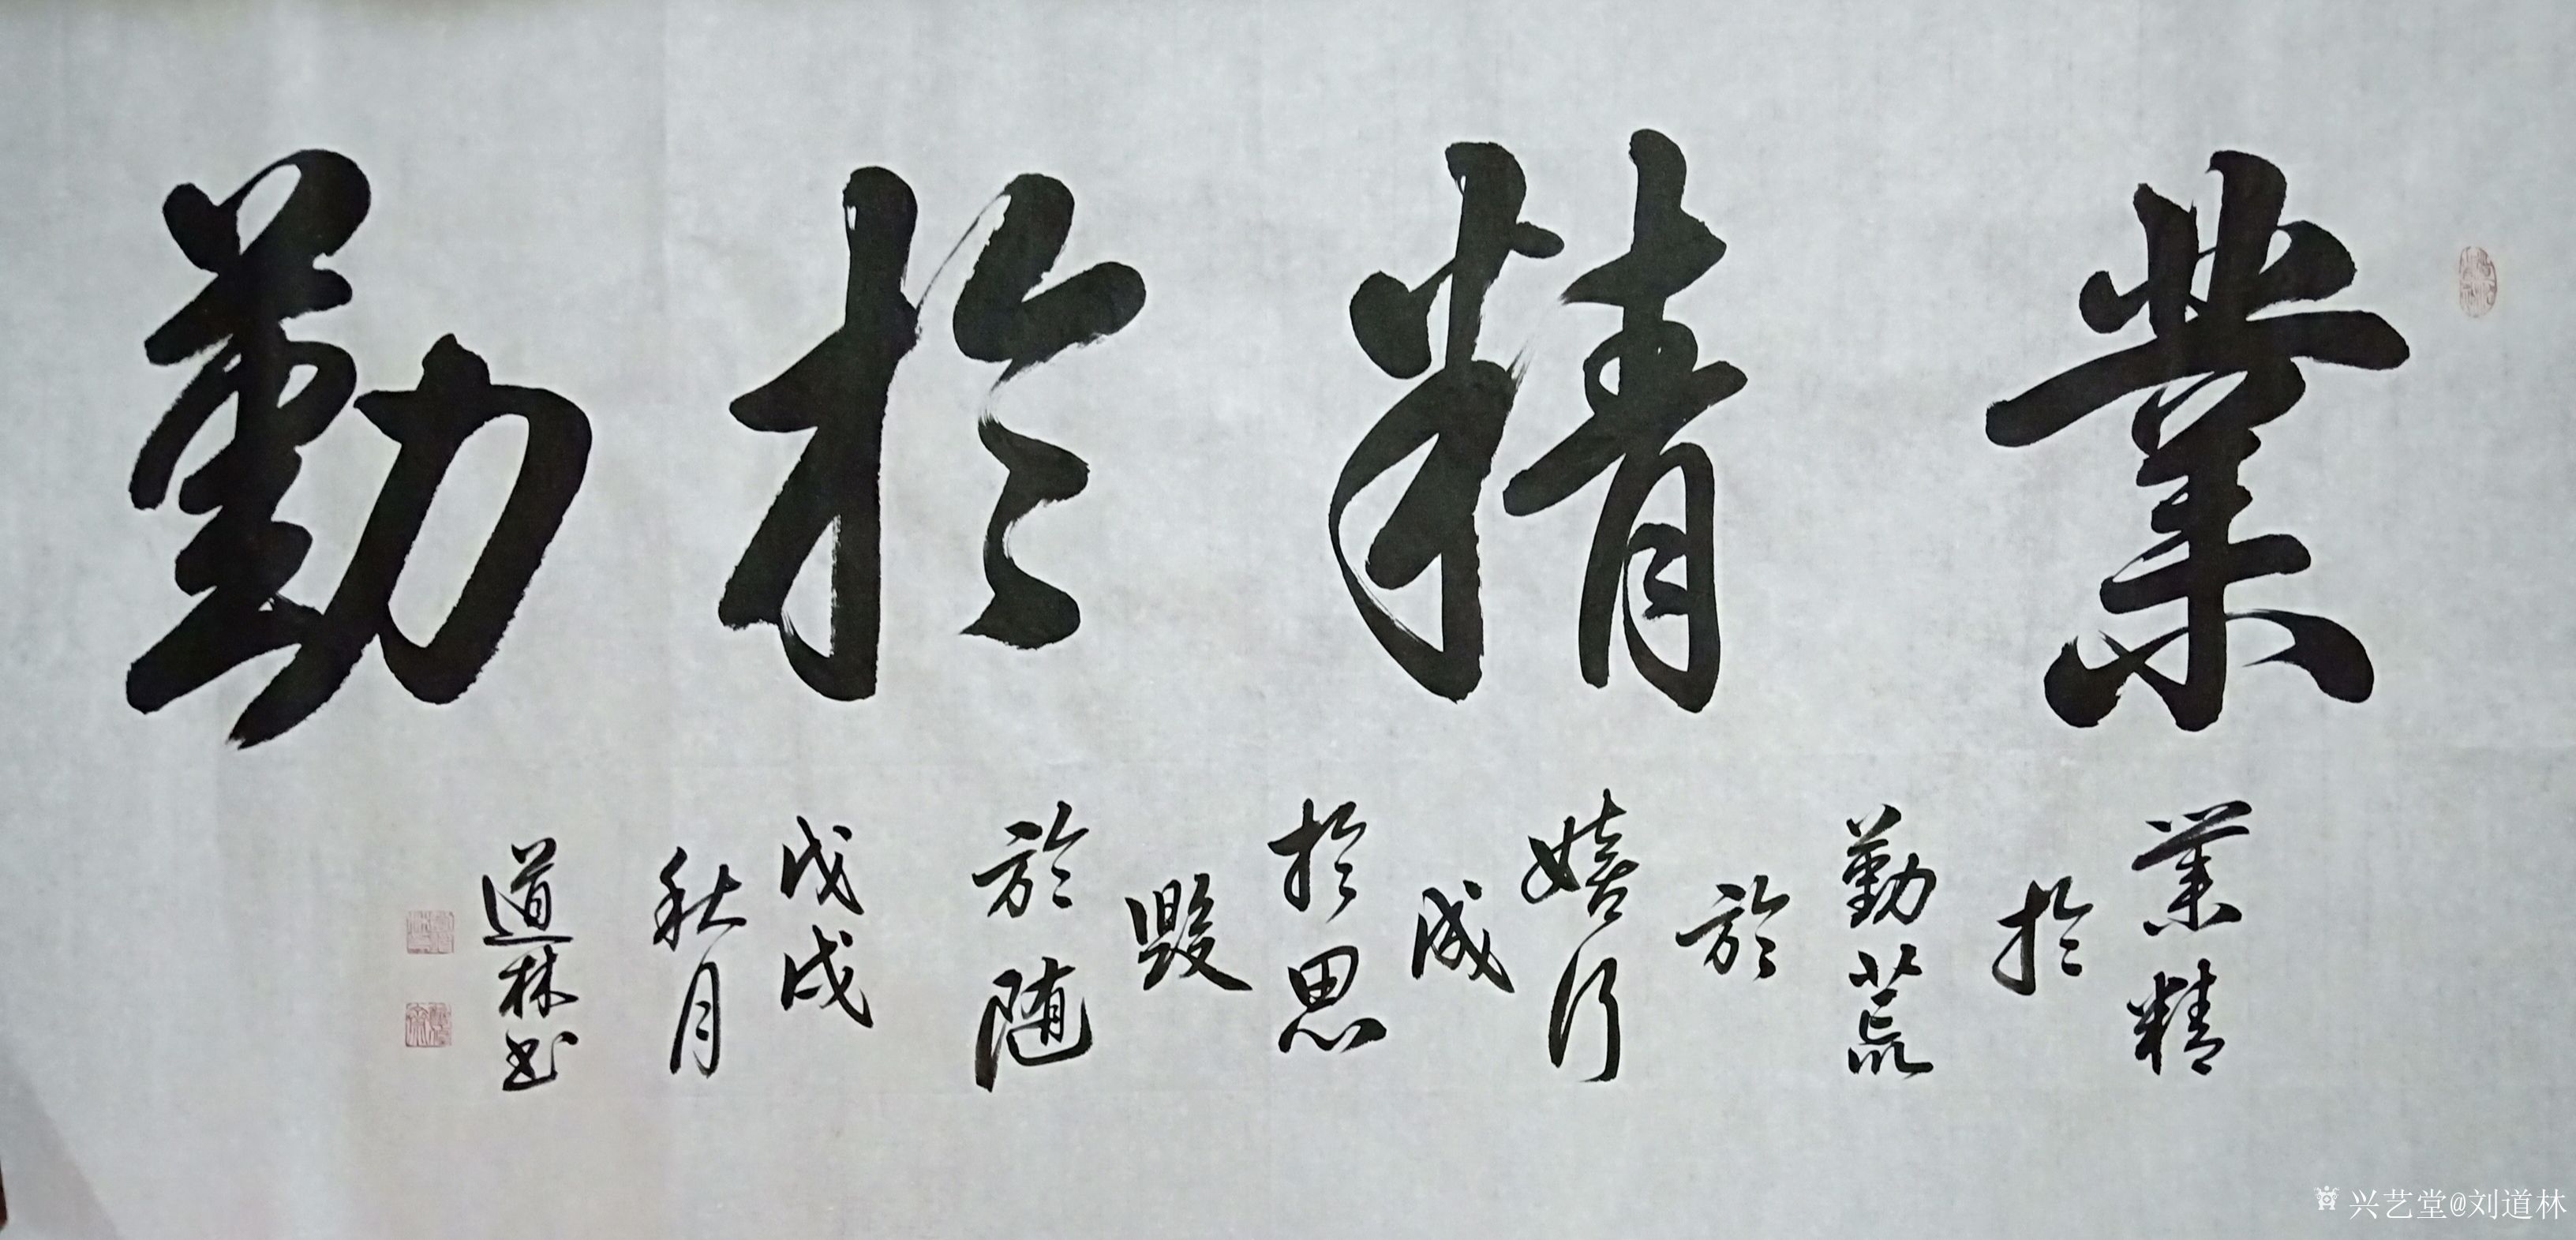 業精於勤
業精
於
勤荒
於
嬉行
成
於思
毀
於随
戊戌
秋月
道林书
兴艺堂@刘道林